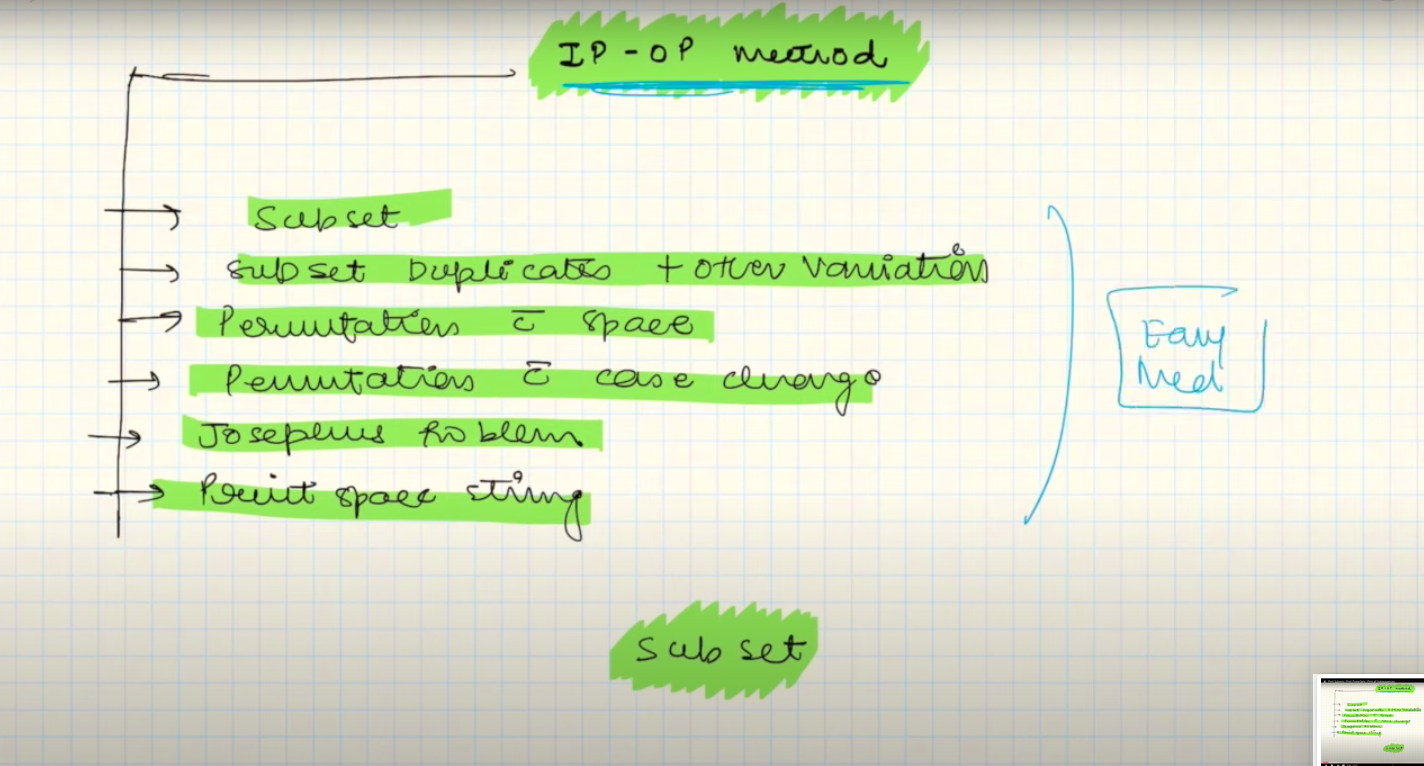 IP-OP Method
Subset
Subset Duplicates + other variation
Permutation c̄ space
Permutation c̄ case change
Josephus Problem
Print space string
Easy
Med
Subset